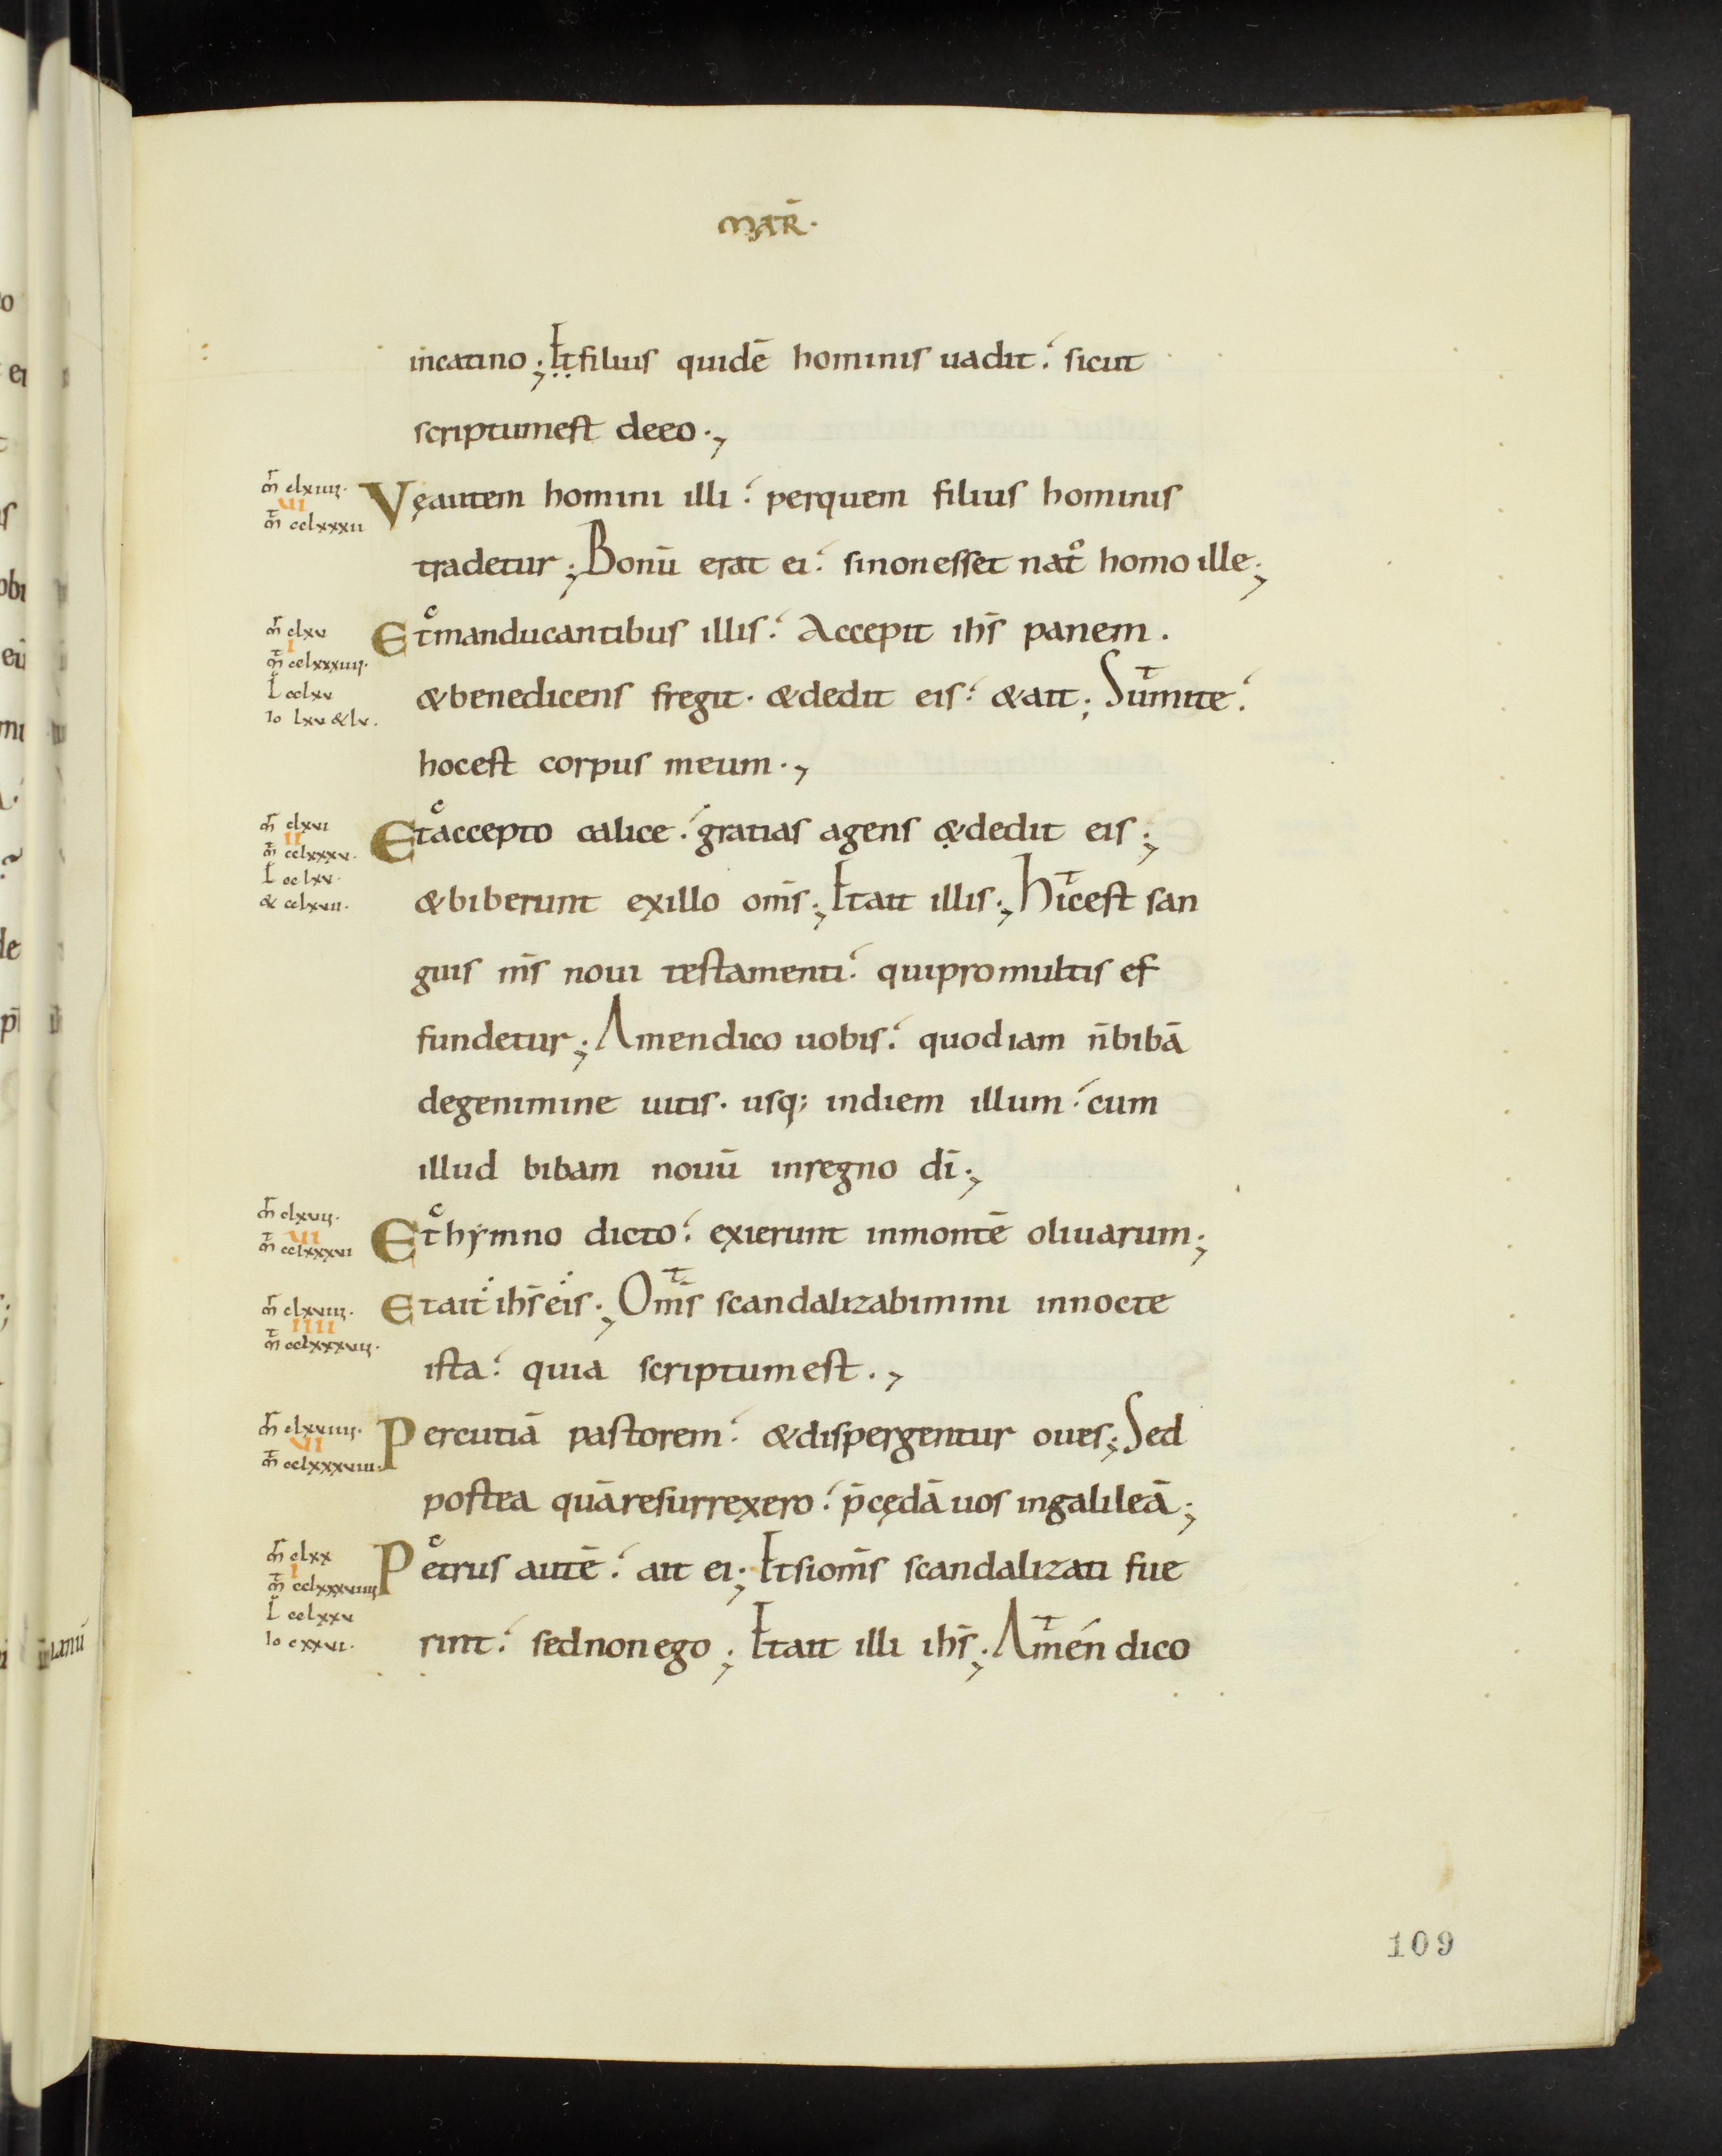 MAR̄.
incatino; Et filius quidē hominis uadit. sicut
scriptumest deeo.,
m̄r clxiiii.
VI
m̄t cclxxxii
Vęautem homini illi. perquem filius hominis
tradetur; Bonū erat ei. sinonesset nat᷒ homo ille;
m̄r clxv
I
m̄t cclxxxiiii.
L cclxv
Io lxv &lv.
Etmanducantibus illis. Accepit ihs̄ panem.
&benedicens fregit. &dedit eis. &ait; Sumite.
hocest corpus meum.,
m̄r clxvi
II
m̄t cclxxxv.
L cclxv.
& cclxvii.
Etaccepto calice. gratias agens &dedit eis;
&biberunt exillo oms̄; Etait illis; Hicest san
guis ms̄ noui testamenti. quipromultis ef
fundetur; Amendico uobis. quodiam n̄bibā
degenimine uitis. usq; indiem illum. cum
illud bibam nouū inregno dī;
m̄r clxvii.
VI
m̄t cclxxxvi
Ethẏmno dicto. exierunt inmontē oliuarum;
m̄r clxviii.
IIII
m̄t cclxxxvii.
Etait ihs̄eis; Oms̄ scandalizabimini innocte
ista. quia scriptumest.,
m̄r clxviiii.
VI
m̄t cclxxxviii.
Percutiā pastorem. &dispergentur oues; Sed
postea quāresurrexero. p̄cędā uos ingalileā;
m̄r clxx
I
m̄t cclxxxviiii
L cclxxv
Io cxxvi.
Petrus autē. ait ei; Etsioms̄ scandalizati fue
rint. sednonego; Etait illi ihs̄; Amen dico
109